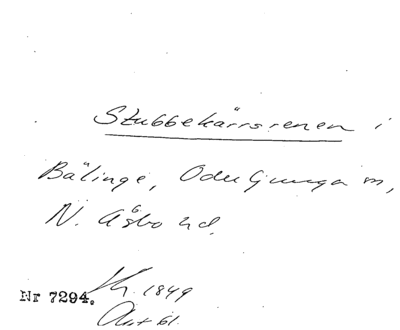 Stubbekärrsrenen i
Bälinge, Oderljunga sn,
N. Åsbo hd.
Nr 7294. 1849